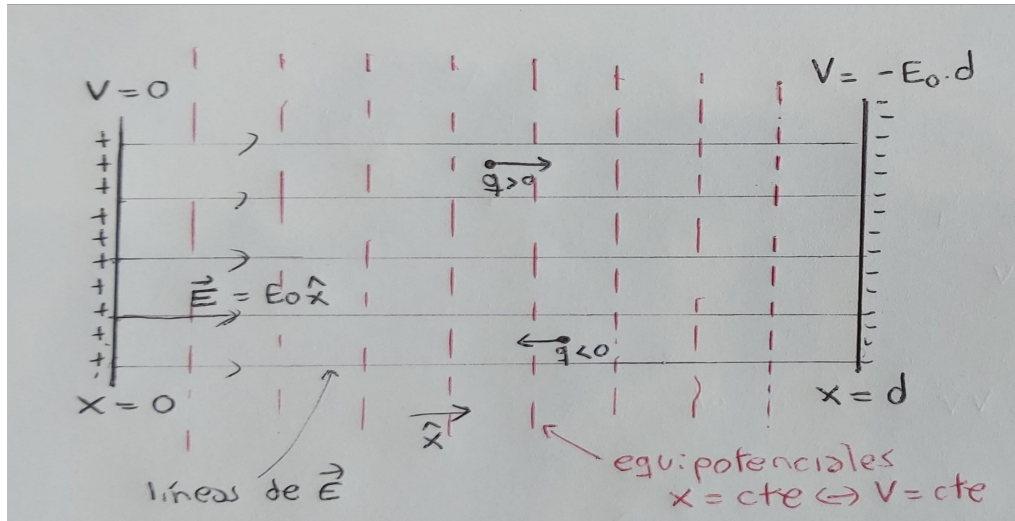 V = 0
V = -E₀.d
+ + + + + + + + + +
- - - - - - - - - - - - - - -
q>0
E⃗ = E₀ x̂
q<0
X = 0
x = d
x̂
líneas de E⃗
equipotenciales
x = cte ↔ V = cte